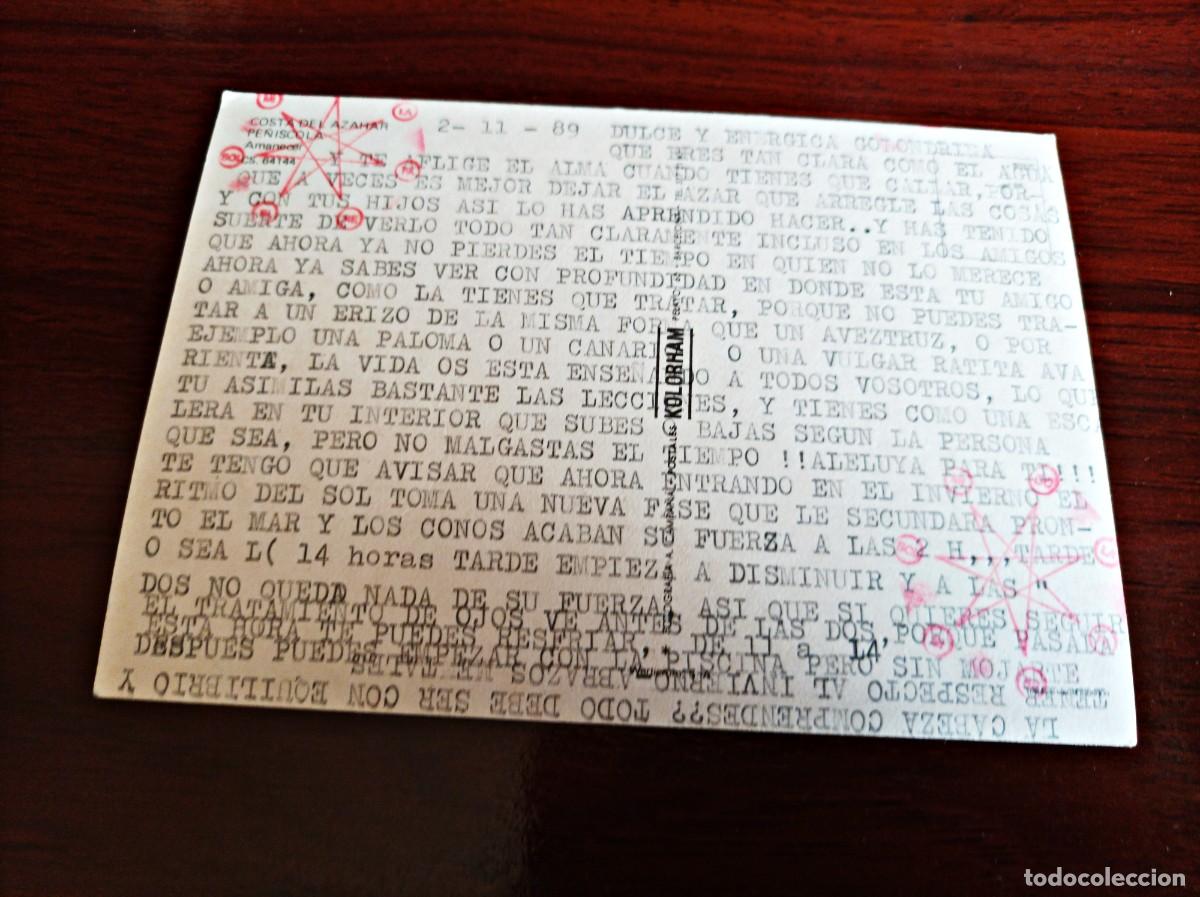 COSTA DEL AZAHAR
PEÑISCOLA
Amanecer
CS. 64144
2- 11 - 89 DULCE Y ENERGICA GOLONDRINA
QUE ERES TAN CLARA COMO EL AGUA
Y TE AFLIGE EL ALMA CUANDO TIENES QUE CALLAR, POR-
QUE A VECES ES MEJOR DEJAR EL AZAR QUE ARREGLE LAS COSES
Y CON TUS HIJOS ASI LO HAS APRENDIDO HACER..Y HAS TENIDO
SUERTE DE VERLO TODO TAN CLARAMENTE INCLUSO EN LOS AMIGOS
QUE AHORA YA NO PIERDES EL TIEMPO EN QUIEN NO LO MERECE
AHORA YA SABES VER CON PROFUNDIDAD EN DONDE ESTA TU AMIGO
O AMIGA, COMO LA TIENES QUE TRATAR, PORQUE NO PUEDES TRA-
TAR A UN ERIZO DE LA MISMA FOR QUE UN AVEZTRUZ, O POR
EJEMPLO UNA PALOMA O UN CANARI O UNA VULGAR RATITA AVA
RIENTA, LA VIDA OS ESTA ENSEÑA DO A TODOS VOSOTROS, LO QUE
TU ASIMILAS BASTANTE LAS LECCI ES, Y TIENES COMO UNA ESCA
LERA EN TU INTERIOR QUE SUBES O BAJAS SEGUN LA PERSONA
QUE SEA, PERO NO MALGASTAS EL TIEMPO !!ALELUYA PARA TI!!!
TE TENGO QUE AVISAR QUE AHORA ENTRANDO EN EL INVIERNO EL
RITMO DEL SOL TOMA UNA NUEVA FASE QUE LE SECUNDARA PRON-
TO EL MAR Y LOS CONOS ACABAN SU FUERZA A LAS 2 H,,,TARDE
O SEA L( 14 horas TARDE EMPIEZA A DISMINUIR Y A LAS "
DOS NO QUEDA NADA DE SU FUERZA, ASI QUE SI QUIERES SEGUIR
EL TRATAMIENTO DE OJOS VE ANTES DE LAS DOS, PORQUE PASADA
ESTA HORA TE PUEDES RESFRIAR,, DE 11 a 14
DESPUES PUEDES EMPEZAR CON LA PISCINA PERO SIN MOJARTE
LA CABEZA COMPRENDES?? TODO DEBE SER CON EQUILIBRIO Y
TENER RESPECTO AL INVIERNO ABRAZOS
KOLORHAM
POSTALES
todocoleccion